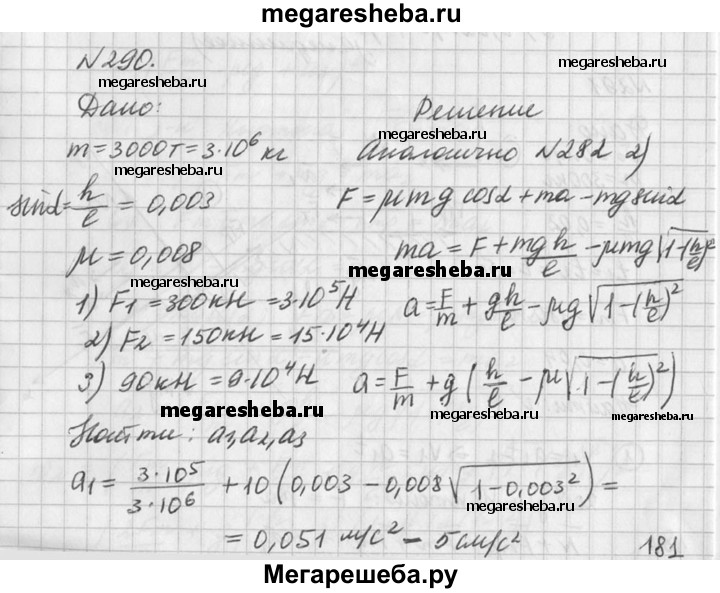 megaresheba.ru
№290.
megaresheba.ru
megaresheba.ru
Дано:
Решение
megaresheba.ru
m=3000т=3·10⁶кг
Аналогично №282 2)
sinα=h/l=0,003
F=μmg cosα+ma−mg sinα
μ=0,008
ma=F+mgh/l−μmg√1−(h/l)²
megaresheba.ru
1) F₁=300кН=3·10⁵Н
a=F/m+gh/l−μg√1−(h/l)²
2) F₂=150кН=15·10⁴Н
3) 90кН=9·10⁴Н
a=F/m+g(h/l−μ√1−(h/l)²)
megaresheba.ru
megaresheba.ru
Найти: a₁,a₂,a₃
a₁=3·10⁵/3·10⁶+10(0,003−0,008√1−0,003²)=
=0,051 м/с²−5см/с²
181
Мегарешеба.ру